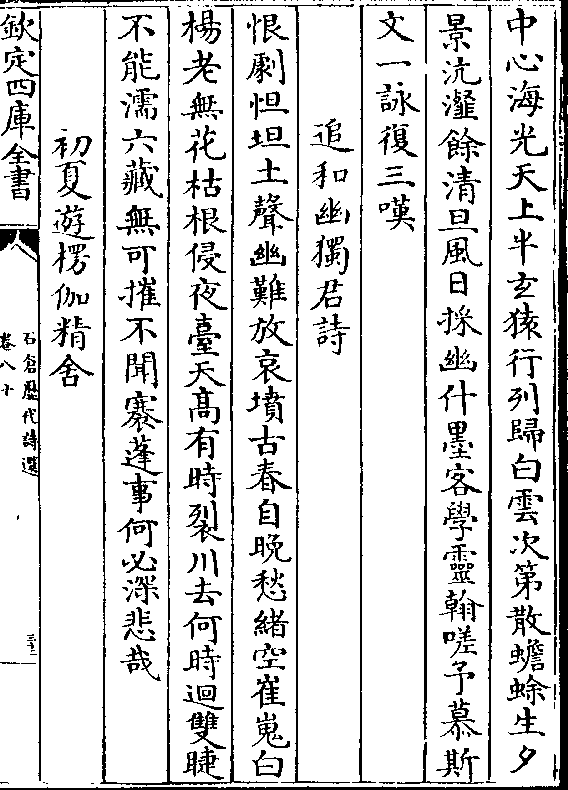 中心海光天上半玄猿行列歸白雲次第散蟾蜍生夕
景沆瀣餘清旦風日採幽什墨客學靈翰嗟予慕斯
文一詠復三嘆
追和幽獨君詩
恨劇怛坦土聲幽難放哀墳古春自晚愁緒空崔嵬白
楊老無花枯根侵夜臺天高有時裂川去何時迴雙睫
不能濡六藏無可摧不聞寋蓬事何必深悲哉
初夏遊楞伽精舍
欽定四庫全書
石倉歷代詩選
卷八十
三十二